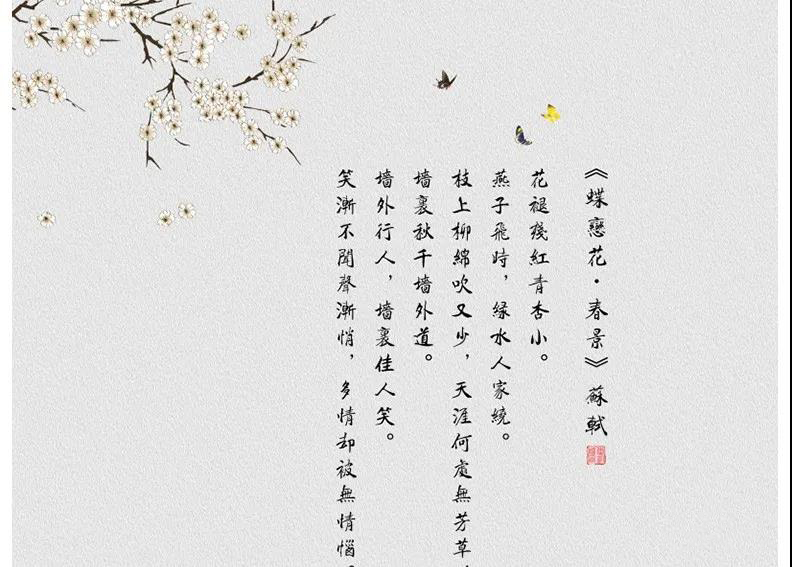 《蝶戀花·春景》蘇軾
花褪殘紅青杏小。
燕子飛時，緑水人家繞。
枝上柳綿吹又少，天涯何處無芳草
墻裏秋千墻外道。
墻外行人，墻裏佳人笑。
笑漸不聞聲漸悄，多情却被無情惱